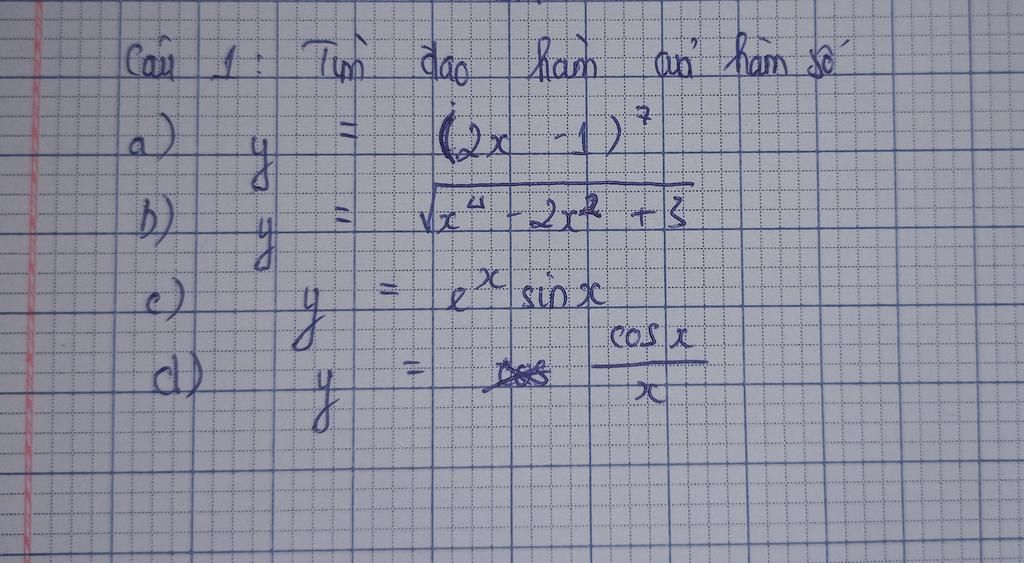 Câu 1: Tìm đạo hàm của hàm số
a) y = (2x - 1)⁷
b) y = √(x⁴ - 2x² + 3)
c) y = eˣ sin x
d) y = cos x / x